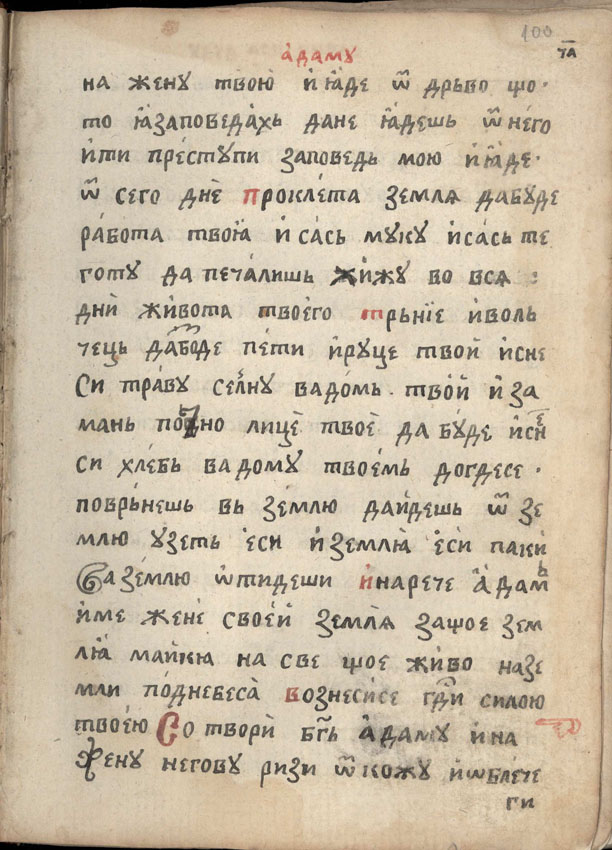 100
адамꙋ
т҃а
на женꙋ твою и ꙗде ѿ дрьво що·
то ꙗзаповедахь дане ꙗдешь ѿ него
ити престꙋпи заповедь мою и ꙗде·
ѿ сего дне проклета землꙗ дабꙋде
работа твоꙗ и сась мꙋкꙋ исась те
готꙋ да печалишь жижꙋ во вся :
дни живота твоего трьнїе иволь
чець дабоде пети ирꙋце твои исне
си травꙋ селнꙋ вадомь· твой иза
мань потно лице твое да бꙋде исне
си хлебь вадомꙋ твоемь догдесе·
поврьнешь вь землю даидешь ѿ зе
млю ꙋзеть еси иземлꙗ еси паки
ѿ
ва землю ѡтидеши инарете адамь
име жене своей земля защое зем
лꙗ майкꙗ на све щое живо назе
мли поднебеса вознесисе гд҃и силою
твоею Сотвори бг҃ь адамꙋ ина
женꙋ неговꙋ ризи ѿ кожꙋ иѡблече
ги